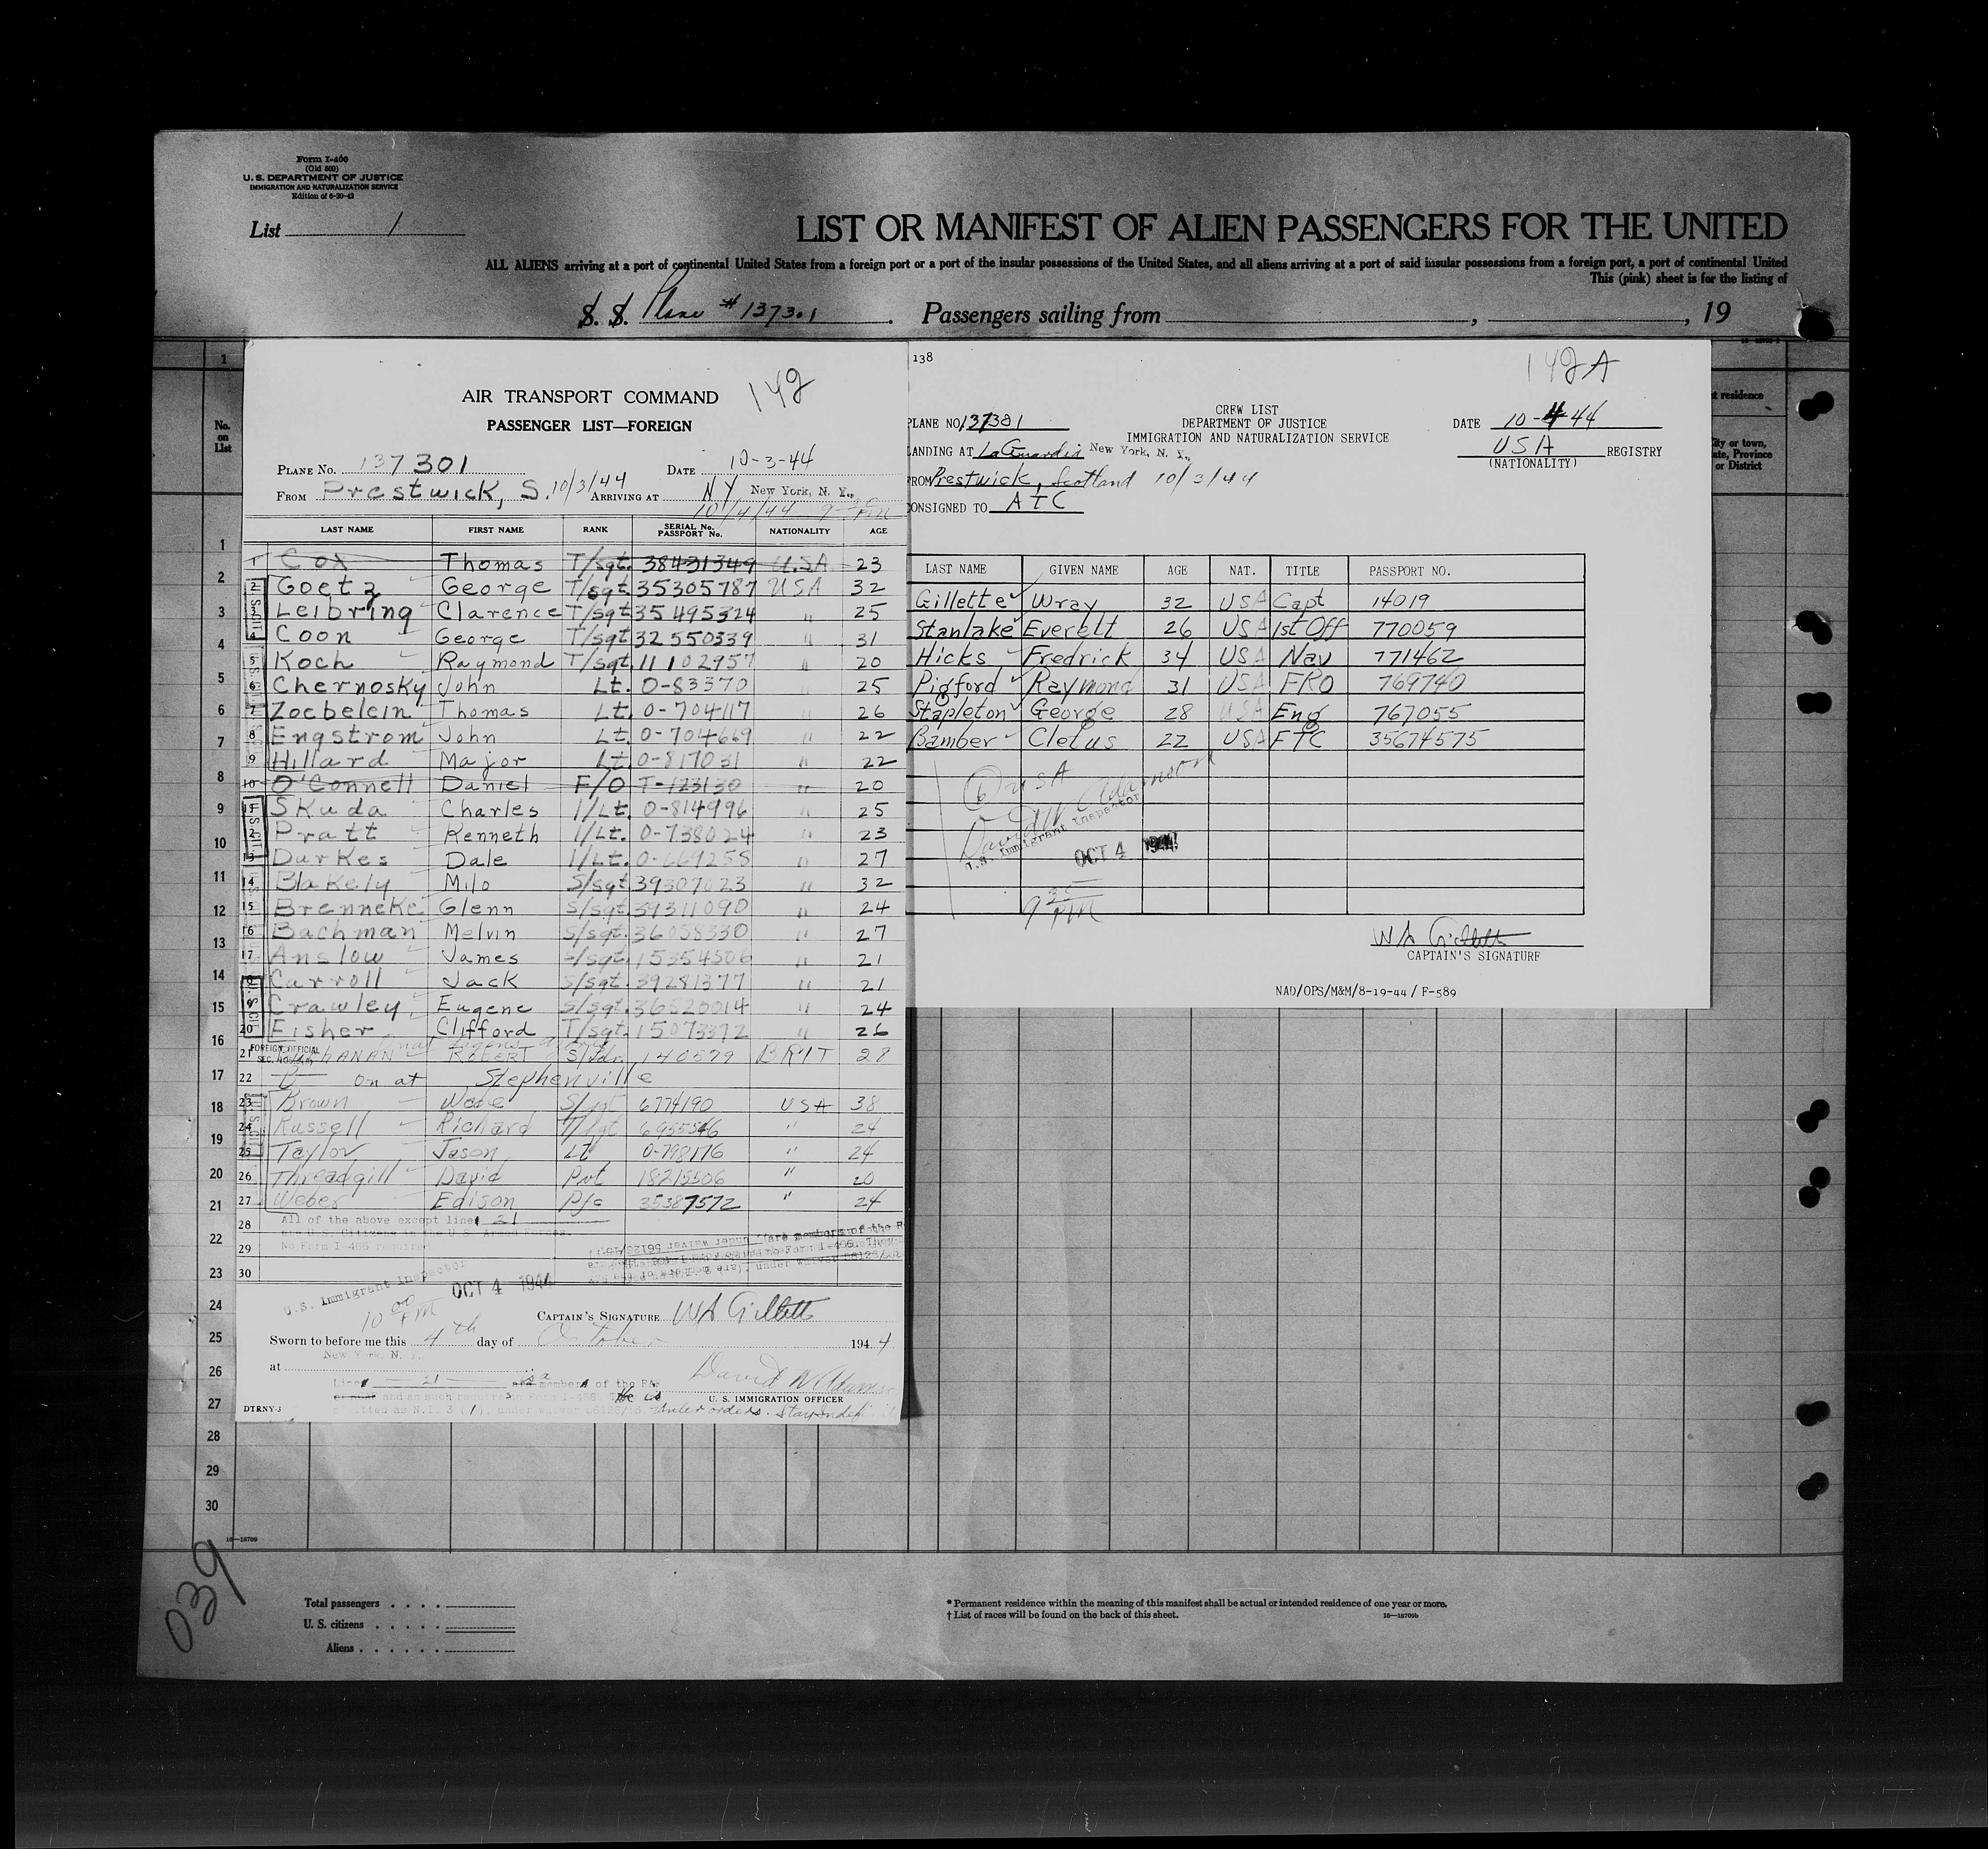 Form I-400
(Old 500)
U. S. DEPARTMENT OF JUSTICE
IMMIGRATION AND NATURALIZATION SERVICE
Edition of 6-20-43
List 1
LIST OR MANIFEST OF ALIEN PASSENGERS FOR THE UNITED
ALL ALIENS arriving at a port of continental United States from a foreign port or a port of the insular possessions of the United States, and all aliens arriving at a port of said insular possessions from a foreign port, a port of continental United
This (pink) sheet is for the listing of
S. S. Plane # 137301. Passengers sailing from , , 19
AIR TRANSPORT COMMAND 142
PASSENGER LIST—FOREIGN
PLANE NO. 137301 DATE 10-3-44
FROM Prestwick, S. 10/3/44 ARRIVING AT NY New York, N. Y.,
10/4/44 9 PM
LAST NAME FIRST NAME RANK SERIAL NO. PASSPORT NO. NATIONALITY AGE
1 Cox Thomas T/sgt. 38431349 U.S.A. 23
2 Goetz George T/sgt 35305787 USA 32
3 Leibring Clarence T/sgt 35495324 " 25
4 Coon George T/sgt 32550339 31
5 Koch Raymond T/sgt. 11102957 " 20
6 Chernosky John Lt. O-83370 25
7 Zoebelein Thomas Lt. O-704117 " 26
8 Engstrom John Lt. O-704669 " 22
9 Hillard Major Lt. O-817031 " 22
10 O'Connell Daniel F/O T-123130 " 20
11 Skuda Charles 1/Lt. O-814996 " 25
12 Pratt Kenneth 1/Lt. O-738024 " 23
13 Durkes Dale 1/Lt. O-669255 " 27
14 Blakely Milo S/sgt. 39307023 " 32
15 Brenneke Glenn S/sgt. 39311090 " 24
16 Bachman Melvin S/sgt. 36058330 " 27
17 Anslow James /sgt. 15354506 " 21
18 Carroll Jack S/sgt. 39281377 " 21
19 Crawley Eugene S/sgt. 36520014 " 24
20 Fisher Clifford T/sgt. 15073372 " 26
FOREIGN OFFICIAL
21 BUCHANAN ROBERT S/Ldr. 140579 BRIT 28
22 on at Stephenville
23 Brown Wade S/sgt 6774190 USA 38
24 Russell Richard T/sgt 6955546 " 24
25 Taylor Jason Lt O-798176 " 24
26 Threadgill David Pvt 18215506 " 20
27 Weber Edison P/c 35387572 " 24
28 All of the above except line 21
are U.S. Citizens in the U.S. Armed Forces.
29 No Form I-466 required
30
U.S. Immigrant Inspector OCT 4 1944
10 00 PM
CAPTAIN'S SIGNATURE WA Gillette
Sworn to before me this 4th day of October 1944
New York, N. Y.
at
Line 21 is a member of the RAF
U. S. IMMIGRATION OFFICER
DTRNY-3
138
142A
CREW LIST
DEPARTMENT OF JUSTICE
IMMIGRATION AND NATURALIZATION SERVICE
PLANE NO. 137301 DATE 10-4-44
LANDING AT LaGuardia New York, N. Y., USA REGISTRY
(NATIONALITY)
FROM Prestwick, Scotland 10/3/44
CONSIGNED TO ATC
LAST NAME GIVEN NAME AGE NAT. TITLE PASSPORT NO.
Gillette Wray 32 USA Capt 14019
Stanlake Everett 26 USA 1st Off 770059
Hicks Fredrick 34 USA Nav 771462
Pigford Raymond 31 USA FRO 769740
Stapleton George 28 USA Eng 767055
Bamber Cletus 22 USA FTC 35674575
(6) USA
David W Adamson
U.S. Immigrant Inspector
OCT 4 1944
9 30 PM
WA Gillette
CAPTAIN'S SIGNATURE
NAD/OPS/M&M/8-19-44 / F-589
No. on List
1 2 3 4 5 6 7 8 9 10 11 12 13 14 15 16 17 18 19 20 21 22 23 24 25 26 27 28 29 30
16—18709
039
Total passengers . . . .
U. S. citizens . . . . .
Aliens . . . . . .
* Permanent residence within the meaning of this manifest shall be actual or intended residence of one year or more.
† List of races will be found on the back of this sheet. 16—18709b